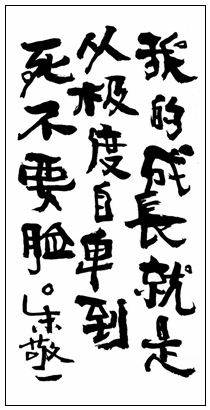 我的成長就是
从极度自卑到
死不要脸。朱敬一